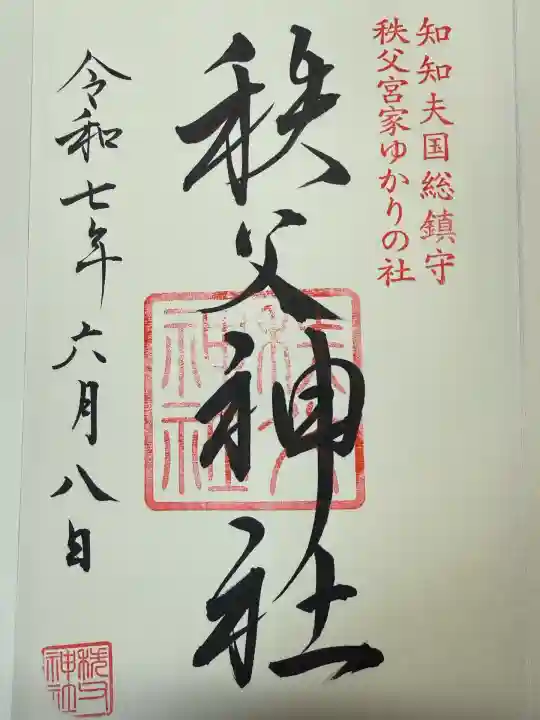 知知夫国総鎮守
秩父宮家ゆかりの社
秩父神社
秩父神社
令和七年六月八日
秩父神社